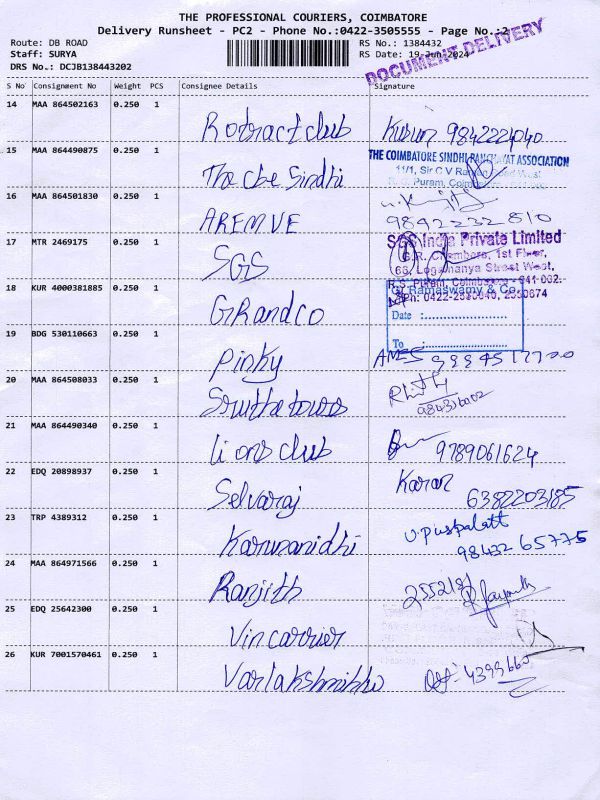 THE PROFESSIONAL COURIERS, COIMBATORE
Delivery Runsheet - PC2 - Phone No.:0422-3505555 - Page No.:2
Route: DB ROAD
RS No.: 1384432
Staff: SURYA
RS Date: 19-Jun-2024
DOCUMENT DELIVERY
DRS No.: DCJB138443202
S No Consignment No Weight PCS Consignee Details Signature
14 MAA 864502163 0.250 1
Rotract club Kuburn 9842221040
15 MAA 864490875 0.250 1
THE COIMBATORE SINDHI PANCHAYAT ASSOCIATION
11/1, Sir C V Raman Road West
R. S. Puram, Coimbatore
The cbe Sindhi
16 MAA 864501830 0.250 1
AREMVE 9842232810
17 MTR 2469175 0.250 1
SGS India Private Limited
G.R. Chambers, 1st Floor,
68, Logamanya Street West,
R.S. Puram, Coimbatore - 641 002.
SGS
18 KUR 4000381885 0.250 1
Ramaswamy & Co
Date :
To :
GRandco
19 BDG 530110663 0.250 1
Pinky
20 MAA 864508033 0.250 1
21 MAA 864490340 0.250 1
Lions club 9789061624
22 EDQ 20898937 0.250 1
Selvaraj Karan 6382203185
23 TRP 4389312 0.250 1
Karunanidhi 98432 65775
24 MAA 864971566 0.250 1
Ranjith
25 EDQ 25642300 0.250 1
Vincarrier
26 KUR 7001570461 0.250 1